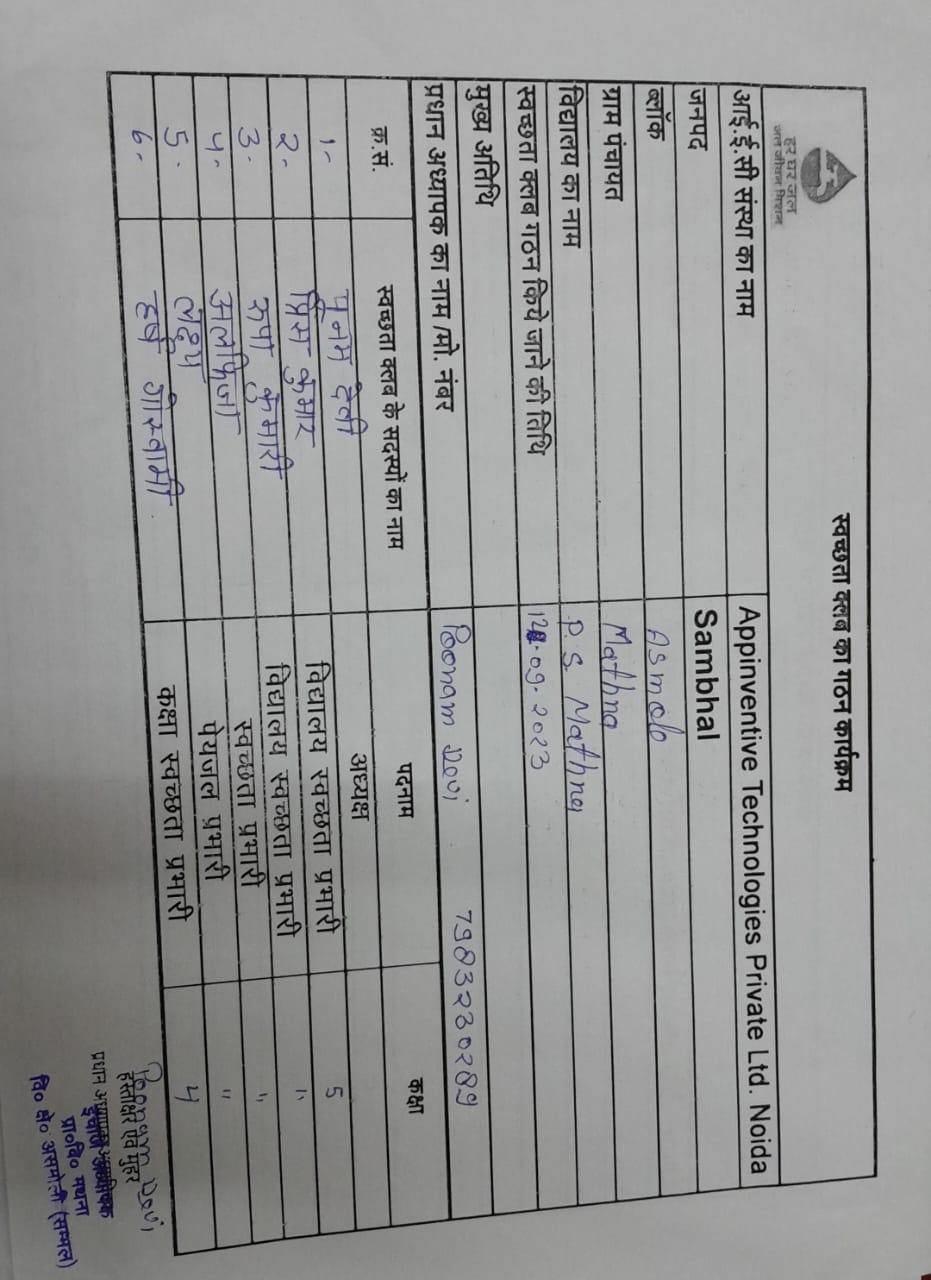 स्वच्छता क्लब का गठन कार्यक्रम
हर घर जल
जल जीवन मिशन
आई.ई.सी संस्था का नाम Appinventive Technologies Private Ltd. Noida
जनपद Sambhal
ब्लॉक Asmole
ग्राम पंचायत Mathna
विद्यालय का नाम P.S. Mathna
स्वच्छता क्लब गठन किये जाने की तिथि 12.09.2023
मुख्य अतिथि
प्रधान अध्यापक का नाम /मो. नंबर Poonam Devi 7983230289
क्र.सं. स्वच्छता क्लब के सदस्यों का नाम पदनाम कक्षा
१- पूनम देवी अध्यक्ष
२- प्रिंस कुमार विद्यालय स्वच्छता प्रभारी 5
३- रुपा कुमारी विद्यालय स्वच्छता प्रभारी "
४- अलफिजा स्वच्छता प्रभारी "
5- लक्ष्य पेयजल प्रभारी "
6- हर्ष गोस्वामी कक्षा स्वच्छता प्रभारी 4
Poonam Devi
हस्ताक्षर एवं मुहर
प्रधान अध्यापक
इंचार्ज अध्यापक
प्रा०वि० मथना
वि० क्षे० असमोली (सम्भल)